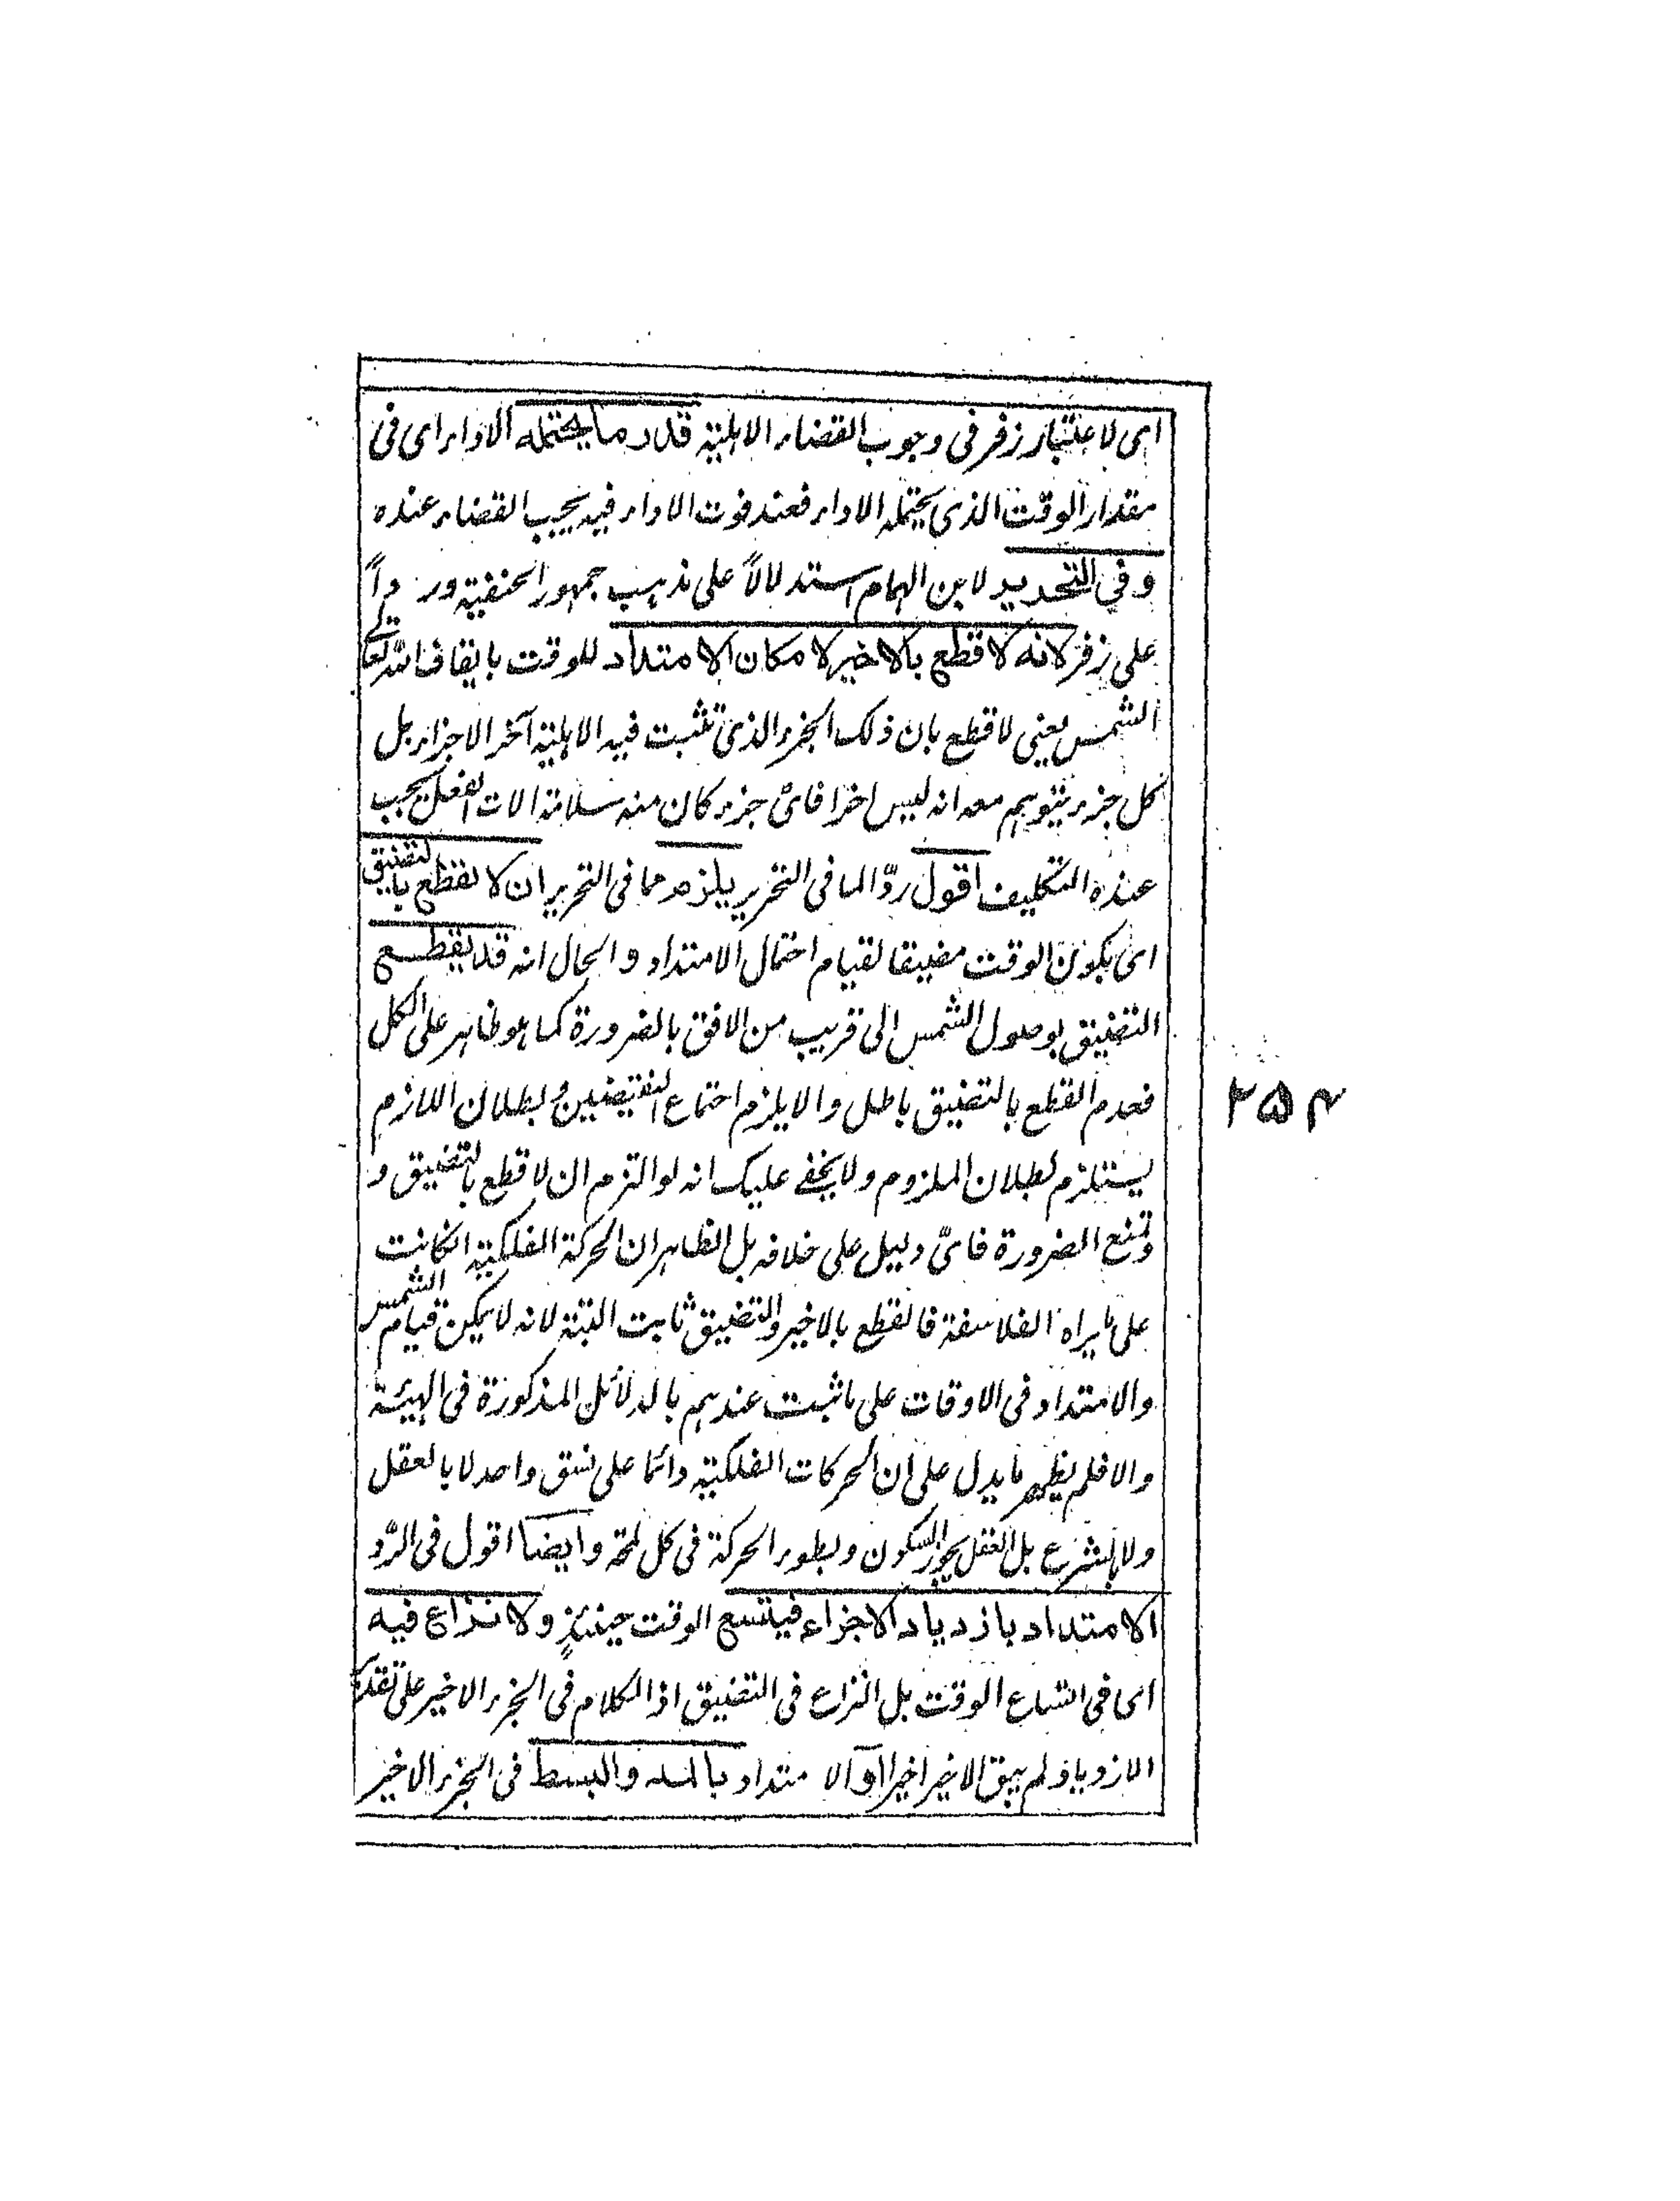 اى لاعتبار زفر فى وجوب القضاء الاهلية قدر ما يحتمله الاداء اى فى
مقدار الوقت الذى يحتمله الاداء فعند فوت الاداء فيه يجب القضاء عنده
وفى التحرير لابن الهمام استدلالاً على مذهب جمهور الحنفية ورداً
على زفر لانه لا قطع بالاخير لامكان الامتداد للوقت بايقاف الله تعالى
الشمس يعنى لا قطع بان ذلك الجزء الذى تثبت فيه الاهلية آخر الاجزاء بل
كل جزء يتوهم معه انه ليس اخرا فاى جزء كان منه سلامة الات الفعل يجب
عنده التكليف اقول ردّا لما فى التحرير يلزم مما فى التحرير ان لا نقطع بالتضييق
اى بكون الوقت مضيقا لقيام احتمال الامتداد والحال انه قد يقطع
التضييق بوصول الشمس الى قريب من الافق بالضرورة كما هو ظاهر على الكل
فعدم القطع بالتضييق باطل والا يلزم اجتماع النقيضين وبطلان اللازم
يستلزم بطلان الملزوم ولا يخفے عليك انه لو التزم ان لا قطع بالتضييق و
وتمنع الضرورة فاىّ دليل على خلافه بل الظاهر ان الحركة الفلكية انكانت
على ما يراه الفلاسفة فالقطع بالاخير والتضييق ثابت البتة لانه لا يمكن قيام الشمس
والامتداد فى الاوقات على ما ثبت عندهم بالدلائل المذكورة فى الهيئة
والا فلم يظهر ما يدل على ان الحركات الفلكية دائما على نسق واحد لا بالعقل
ولا بالشرع بل العقل يجوز السكون وبطوء الحركة فى كل لمحة وايضا اقول فى الرّد
الامتداد بازدياد الاجزاء فيتسع الوقت حينئذٍ ولا نزاع فيه
اى فى اتساع الوقت بل النزاع فى التضييق اذ الكلام فى الجزء الاخير على تقدير
الازدياد لم يبق الاخير اخيرا او الامتداد بالمد والبسط فى الجزء الاخير
۲۵۴